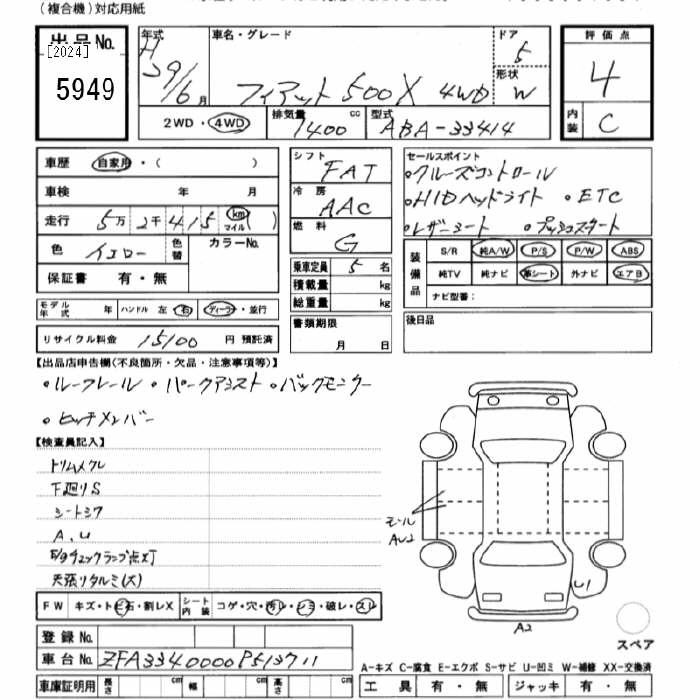 (複合機)対応用紙
出品No.
[2024]
5949
年式 車名・グレード ドア
H29/6月 フィアット 500X 4WD 5
形状
W
2WD・4WD 排気量 1400 cc 型式 ABA-33414
評価点
4
内装 C
車歴 自家用・( )
車検 年 月
走行 5万2千415 km マイル ( )
色 イエロー 色替 カラーNo.
保証書 有・無
モデル年式 年 ハンドル 左・右 ディーラー・並行
リサイクル料金 15100 円 預託済
シフト FAT
冷房 AAC
燃料 G
乗車定員 5 名
積載量 kg
総重量 kg
書類期限
月 日
セールスポイント
・クルーズコントロール
・HIDヘッドライト ・ETC
・レザーシート ・プッシュスタート
装備品
S/R 純A/W P/S P/W ABS
純TV 純ナビ 革シート 外ナビ エアB
ナビ型番:
後日品
【出品店申告欄(不良箇所・欠品・注意事項等)】
・ルーフレール ・パークアシスト ・バックモニター
・ヒッチメンバー
【検査員記入】
トリムメクレ
下廻りS
シートシワ
A、U
E/gチェックランプ点灯
天張りタルミ(大)
モール
AU2
U1
A2
スペア
FW キズ・トビ石・割レX シート内装 コゲ・穴・汚レ・シミ・破レ・スレ
登録No.
車台No. ZFA3340000P513711
車庫証明用 長さ cm 幅 cm 高さ cm
A-キズ C-腐食 E-エクボ S-サビ U-凹ミ W-補修 XX-交換済
工具 有・無 ジャッキ 有・無